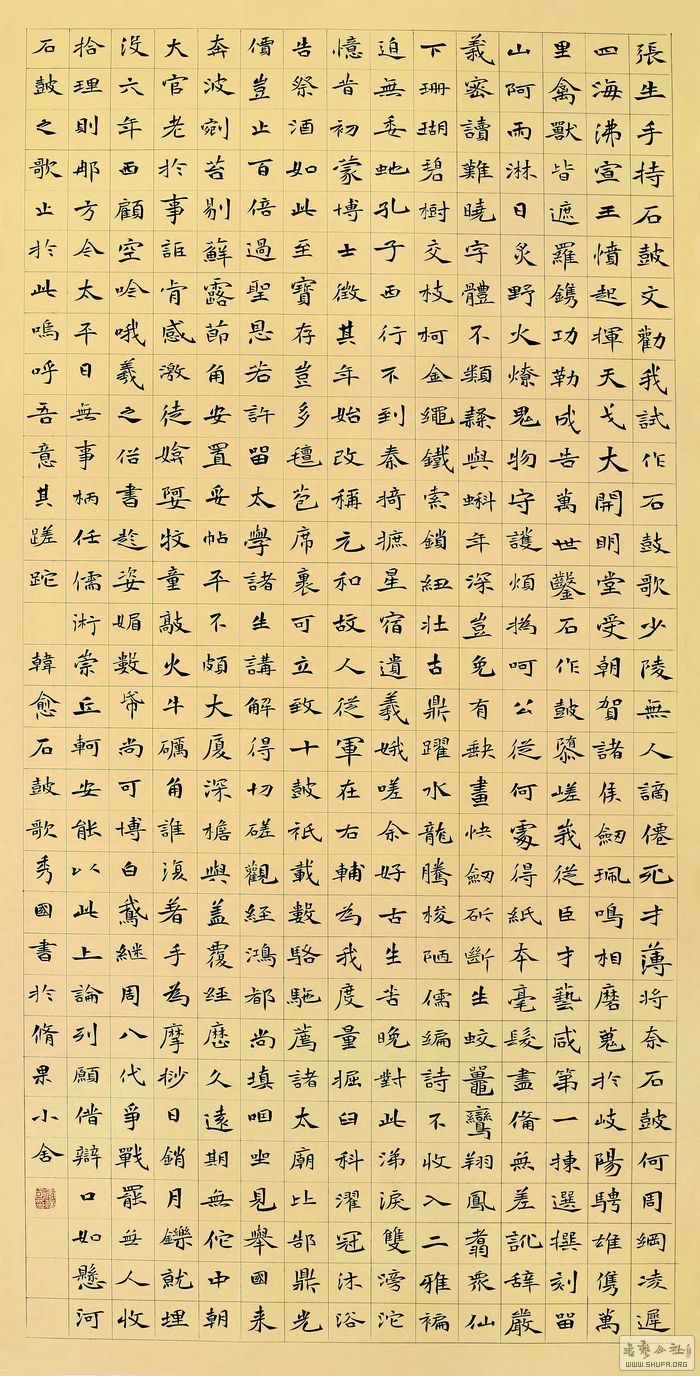 張生手持石鼓文勸我試作石鼓歌少陵無人謫僊死才薄將奈石鼓何周綱凌遲
四海沸宣王憤起揮天戈大開明堂受朝賀諸侯劒珮鳴相磨蒐於岐陽騁雄儁萬
里禽獸皆遮羅鐫功勒成告萬世鑿石作鼓隳嵯峩從臣才藝咸第一揀選撰刻留
山阿雨淋日炙野火燎鬼物守護煩撝呵公從何處得紙本毫髮盡備無差訛辭嚴
義密讀難曉字體不類隸與蝌年深豈免有缺畫快劒斫斷生蛟鼉鸞翔鳳翥眾仙
下珊瑚碧樹交枝柯金繩鐵索鎖紐壯古鼎躍水龍騰梭陋儒編詩不收入二雅褊
迫無委虵孔子西行不到秦掎摭星宿遺羲娥嗟余好古生苦晚對此涕淚雙滂沱
憶昔初蒙博士徵其年始改稱元和故人從軍在右輔為我度量掘臼科濯冠沐浴
告祭酒如此至寶存豈多氊苞席裹可立致十鼓祇載數駱駞薦諸太廟比郜鼎光
價豈止百倍過聖恩若許留太學諸生講解得切磋觀經鴻都尚填咽坐見舉國来
奔波剜苔剔蘚露節角安置妥帖平不頗大廈深檐與盖覆經歷久遠期無佗中朝
大官老於事詎肯感激徒媕婀牧童敲火牛礪角誰復著手為摩挲日銷月鑠就埋
沒六年西顧空吟哦羲之俗書趁姿媚數紙尚可博白鵞繼周八代爭戰罷無人收
拾理則那方今太平日無事柄任儒術崇丘軻安能以此上論列願借辯口如懸河
石鼓之歌止於此嗚呼吾意其蹉跎 韓愈石鼓歌秀國書於脩果小舍
WWW.SHUFA.ORG